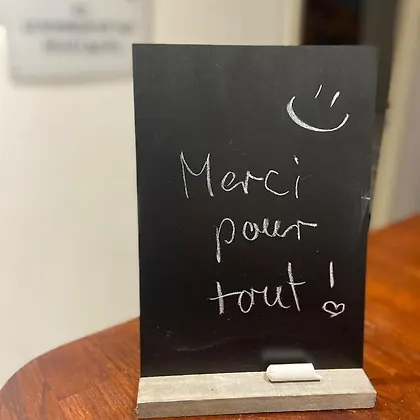 Merci
pour
tout!